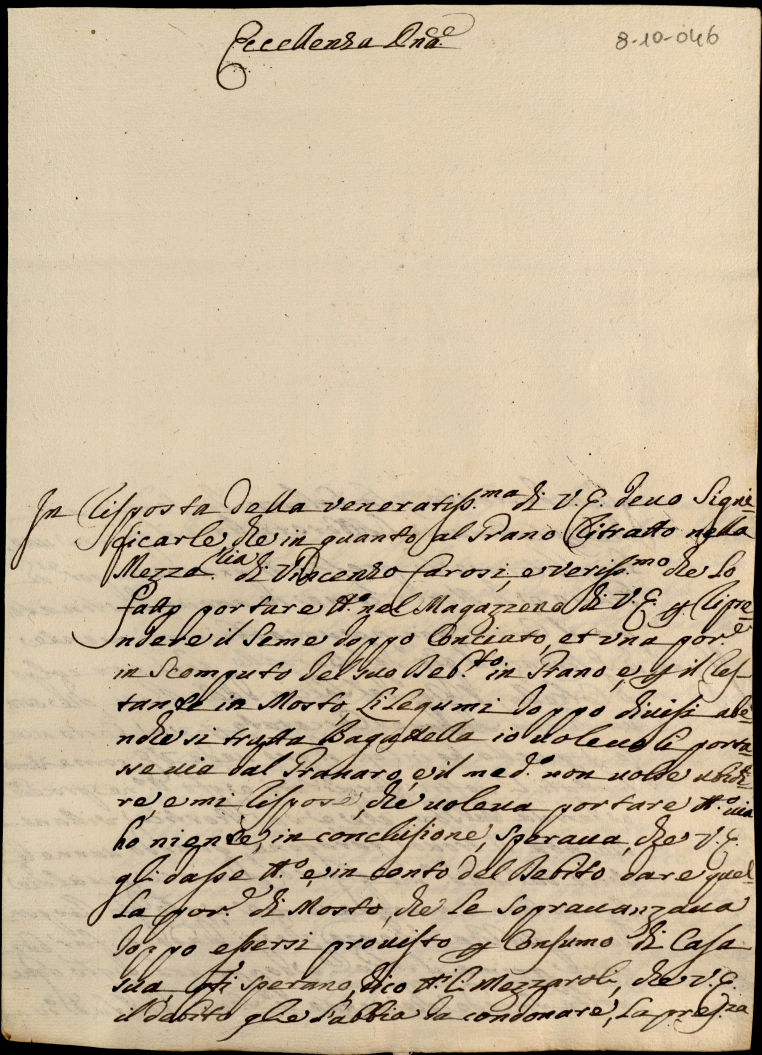 Eccellenza Dna.e
8-10-046
In Risposta della veneratiss.ma di V.E. deuo Signi=
ficarle che in quanto al Grano Ritratto nella
Mezza.ria di Vincenzo Carosi, e veriss.mo che Lo
fatto portare tt.o nel Magazzeno di V.E. p Ripre=
ndere il Seme doppo Conciato, et vna por.e
in Scomputo del suo Deb.to in Grano e, p il Res-
tante in Mosto, Li legumi doppo diuisi abe=
nche si tratta Bagattella io voleuo li porta=
sse uia dal Granaro, e il med.o non uolse ubidi=
re, e mi Rispose, che uoleua portare tt.o uia
ho niente, in conclusione, speraua, che V.E.
gli dasse tt.o e, in conto del Debito dare quel=
La por.e di Mosto, che le soprauanzaua
doppo essersi prouisto p Consumo di Casa
sua, tt.i sperano, dico tt.i l. Mezzaroli, che V.E.
il dabito glie l'abbia da condonare, La pres.za